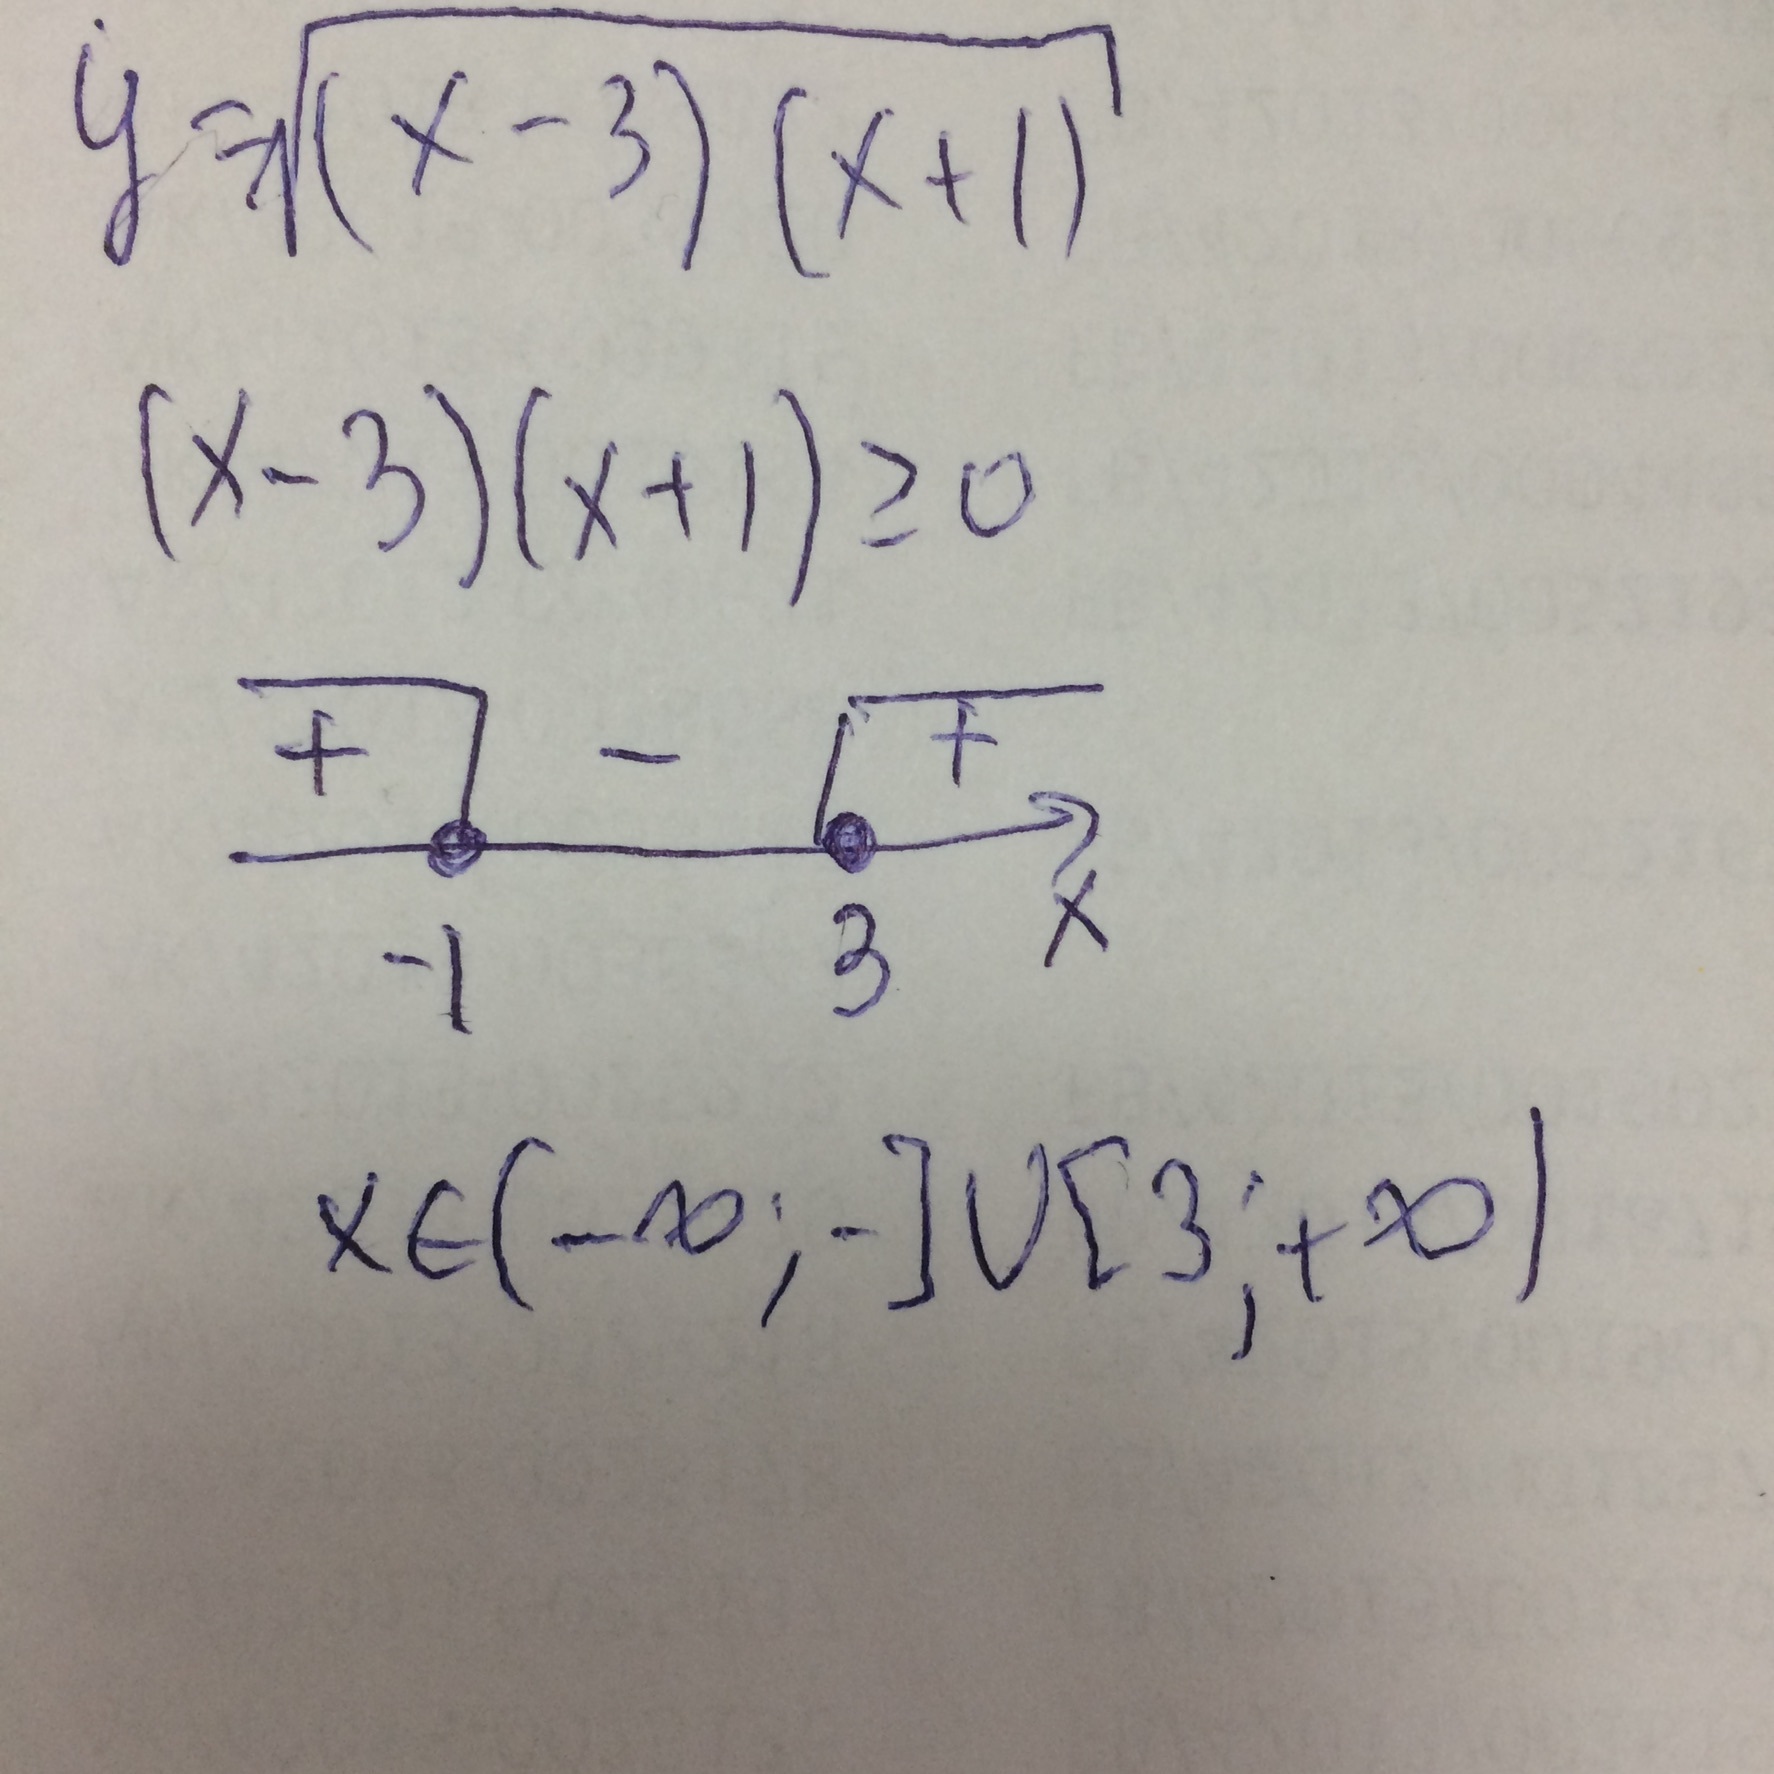 y=√(x-3)(x+1)
(x-3)(x+1)≥0
+ - +
-1 3 x
x∈(-∞;-]∪[3;+∞)